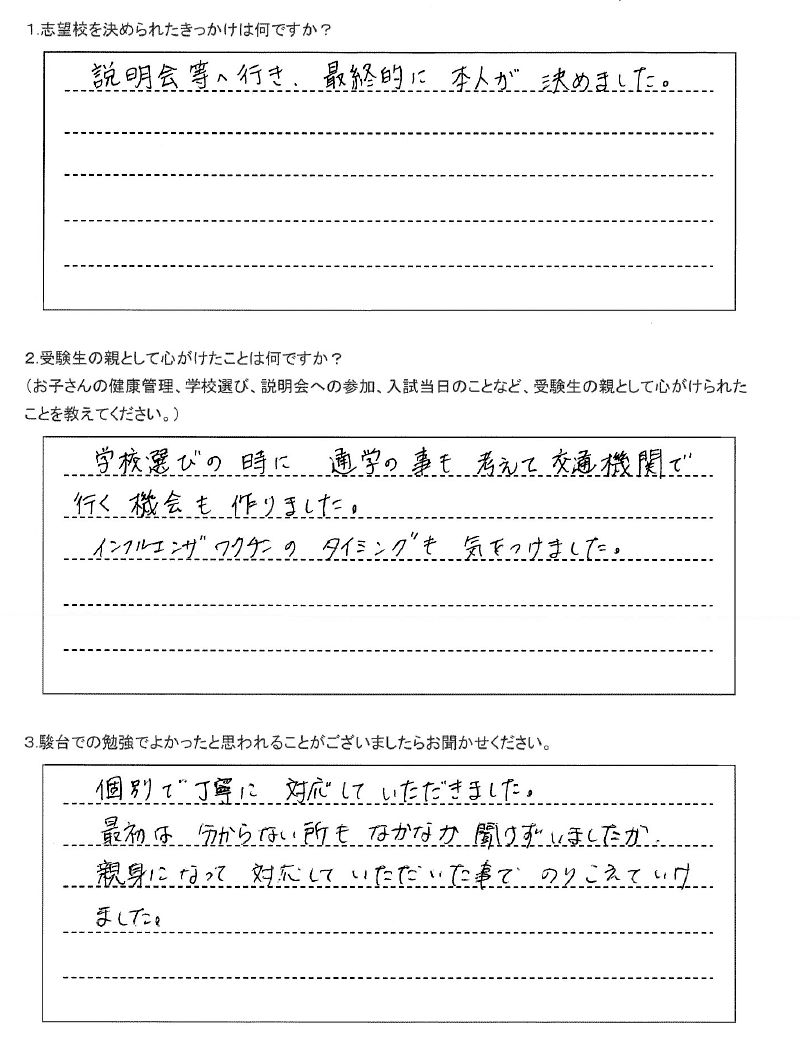 1.志望校を決められたきっかけは何ですか？
説明会等へ行き、最終的に 本人が 決めました。
2.受験生の親として心がけたことは何ですか？
（お子さんの健康管理、学校選び、説明会への参加、入試当日のことなど、受験生の親として心がけられた
ことを教えてください。）
学校選びの 時に 通学の事も 考えて 交通機関で
行く 機会も 作りました。
インフルエンザ ワクチンの タイミングも 気をつけました。
3.駿台での勉強でよかったと思われることがございましたらお聞かせください。
個別で丁寧に 対応して いただきました。
最初は 分からない所も なかなか 聞けずいましたが、
親身になって 対応して いただいた事で のりこえていけ
ました。